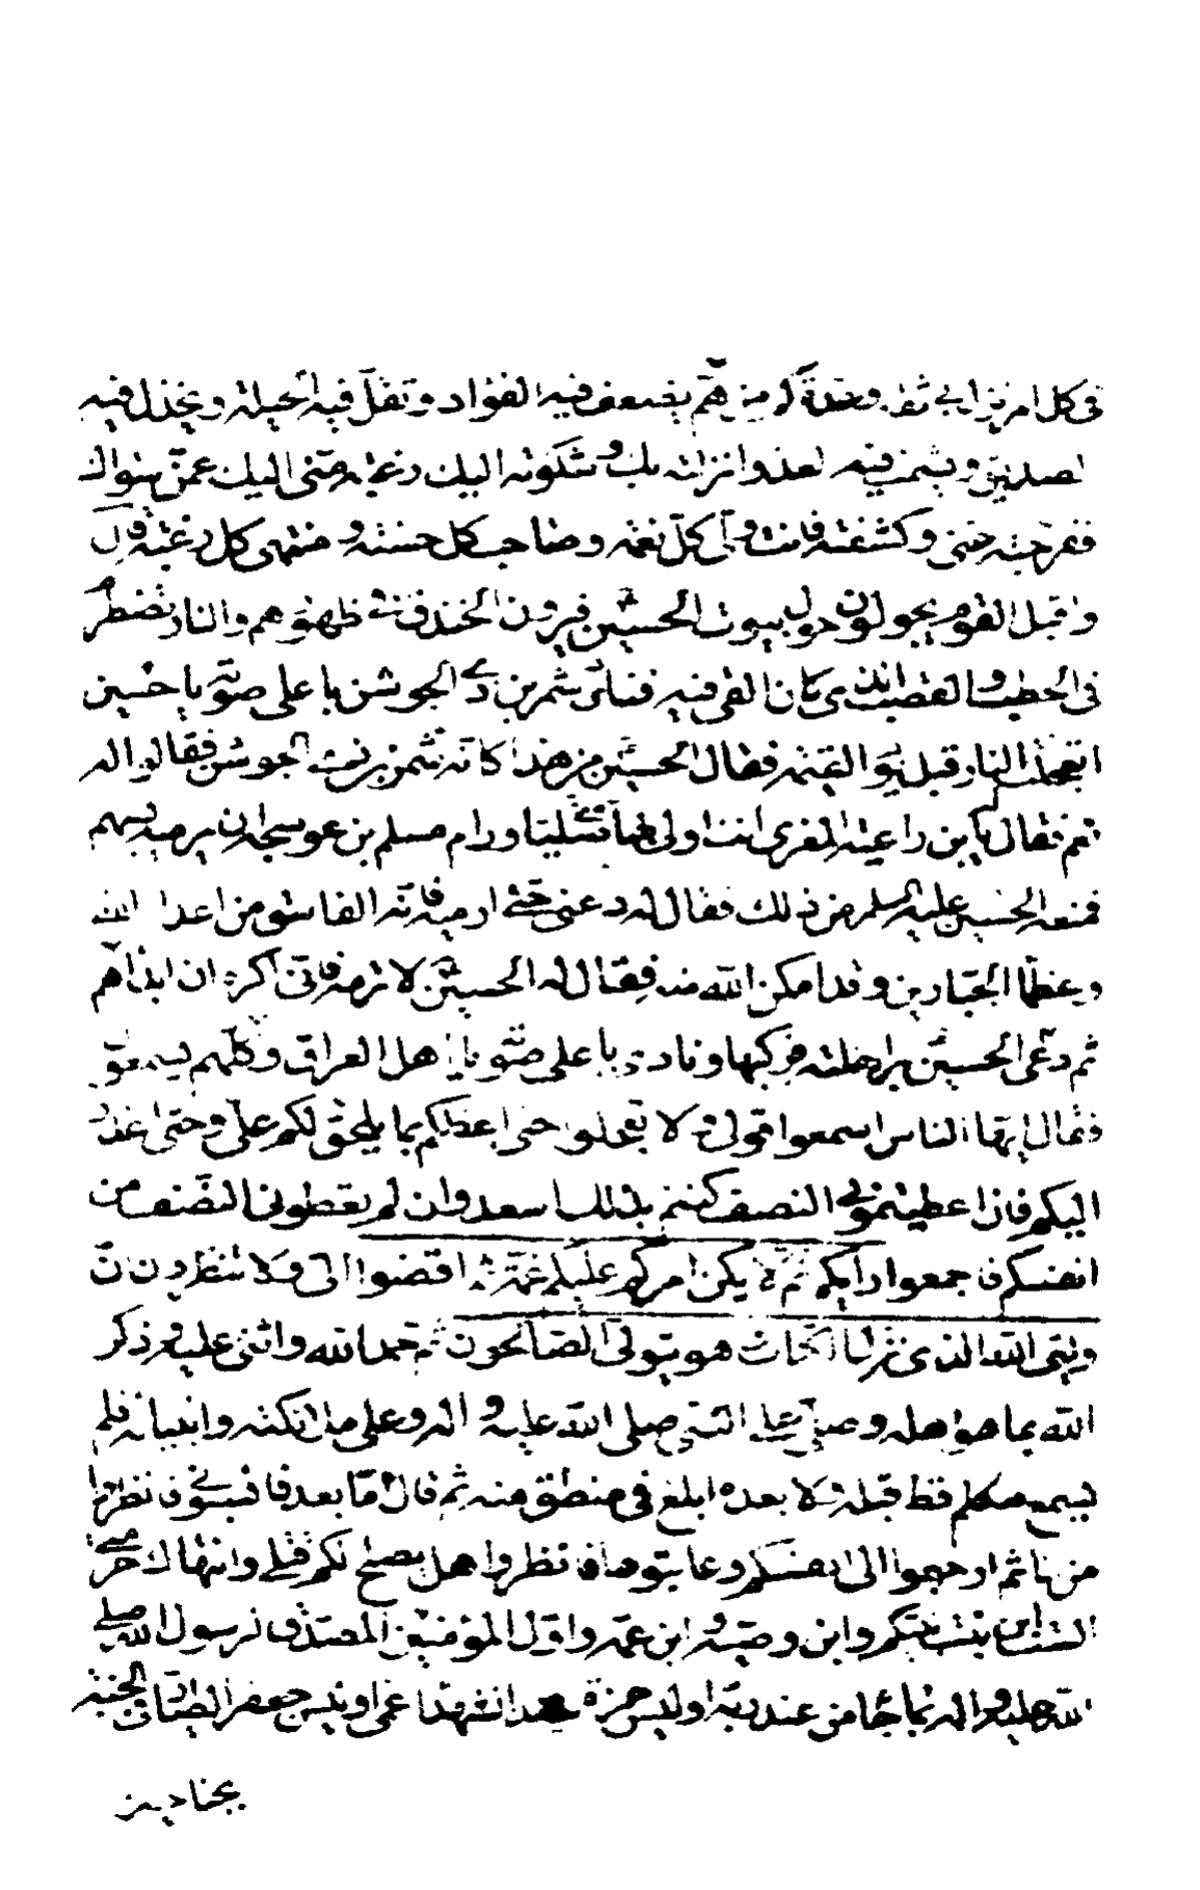 في كل امر نزل بي ثقة وعدة كم من هم يضعف فيه الفؤاد وتقل فيه الحيلة ويخذل فيه
الصديق ويشمت فيه العدو انزلته بك وشكوته اليك رغبة منى اليك عمن سواك
ففرجته عنى وكشفته فانت ولى كل نعمة وصاحب كل حسنة ومنتهى كل رغبة قال
واقبل القوم يجولون حول بيوت الحسين فيرون الخندق في ظهورهم والنار تضطرم
في الحطب والقصب الذى كان القى فيه فنادى شمر بن ذي الجوشن باعلى صوته يا حسين
اتعجلت النار قبل يوم القيمة فقال الحسين من هذا كانه شمر بن ذي الجوشن فقالوا له
نعم فقال يا بن راعية المعزى انت اولى بها صليا ورام مسلم بن عوسجة ان يرميه بسهم
فمنعه الحسين عليه السلم من ذلك فقال له دعنى حتى ارميه فانه الفاسق من اعداء الله
وعظماء الجبارين وقد امكن الله منه فقال له الحسين لا ترمه فانى اكره ان ابداهم
ثم دعى الحسين براحلته فركبها ونادى باعلى صوته يا اهل العراق وكلهم يسمعون
فقال ايها الناس اسمعوا قولى ولا تعجلوا حتى اعظكم بما يحق لكم على وحتى اعذر
اليكم فان اعطيتمونى النصف كنتم بذلك اسعد وان لم تعطونى النصف من
انفسكم فاجمعوا رايكم ثم لا يكن امركم عليكم غمة ثم اقضوا الى ولا تنظرون ان
وليى الله الذى نزل الكتاب وهو يتولى الصالحون ثم حمد الله واثنى عليه وذكر
الله بما هو اهله وصلى على النبى صلى الله عليه و اله وعلى ملائكته وانبيائه فلم
يسمع متكلم قط قبله ولا بعده ابلغ في منطق منه ثم قال اما بعد فانسبونى فانظروا
من انا ثم ارجعوا الى انفسكم وعاتبوها فانظروا هل يصلح لكم قتلى وانتهاك حرمتى
الست ابن بنت نبيكم وابن وصيه وابن عمه واول المؤمنين المصدق لرسول الله صلى
الله عليه واله بما جاء من عند ربه اوليس حمزة سيد الشهداء عمى اوليس جعفر الطيار في الجنة
بجناحين